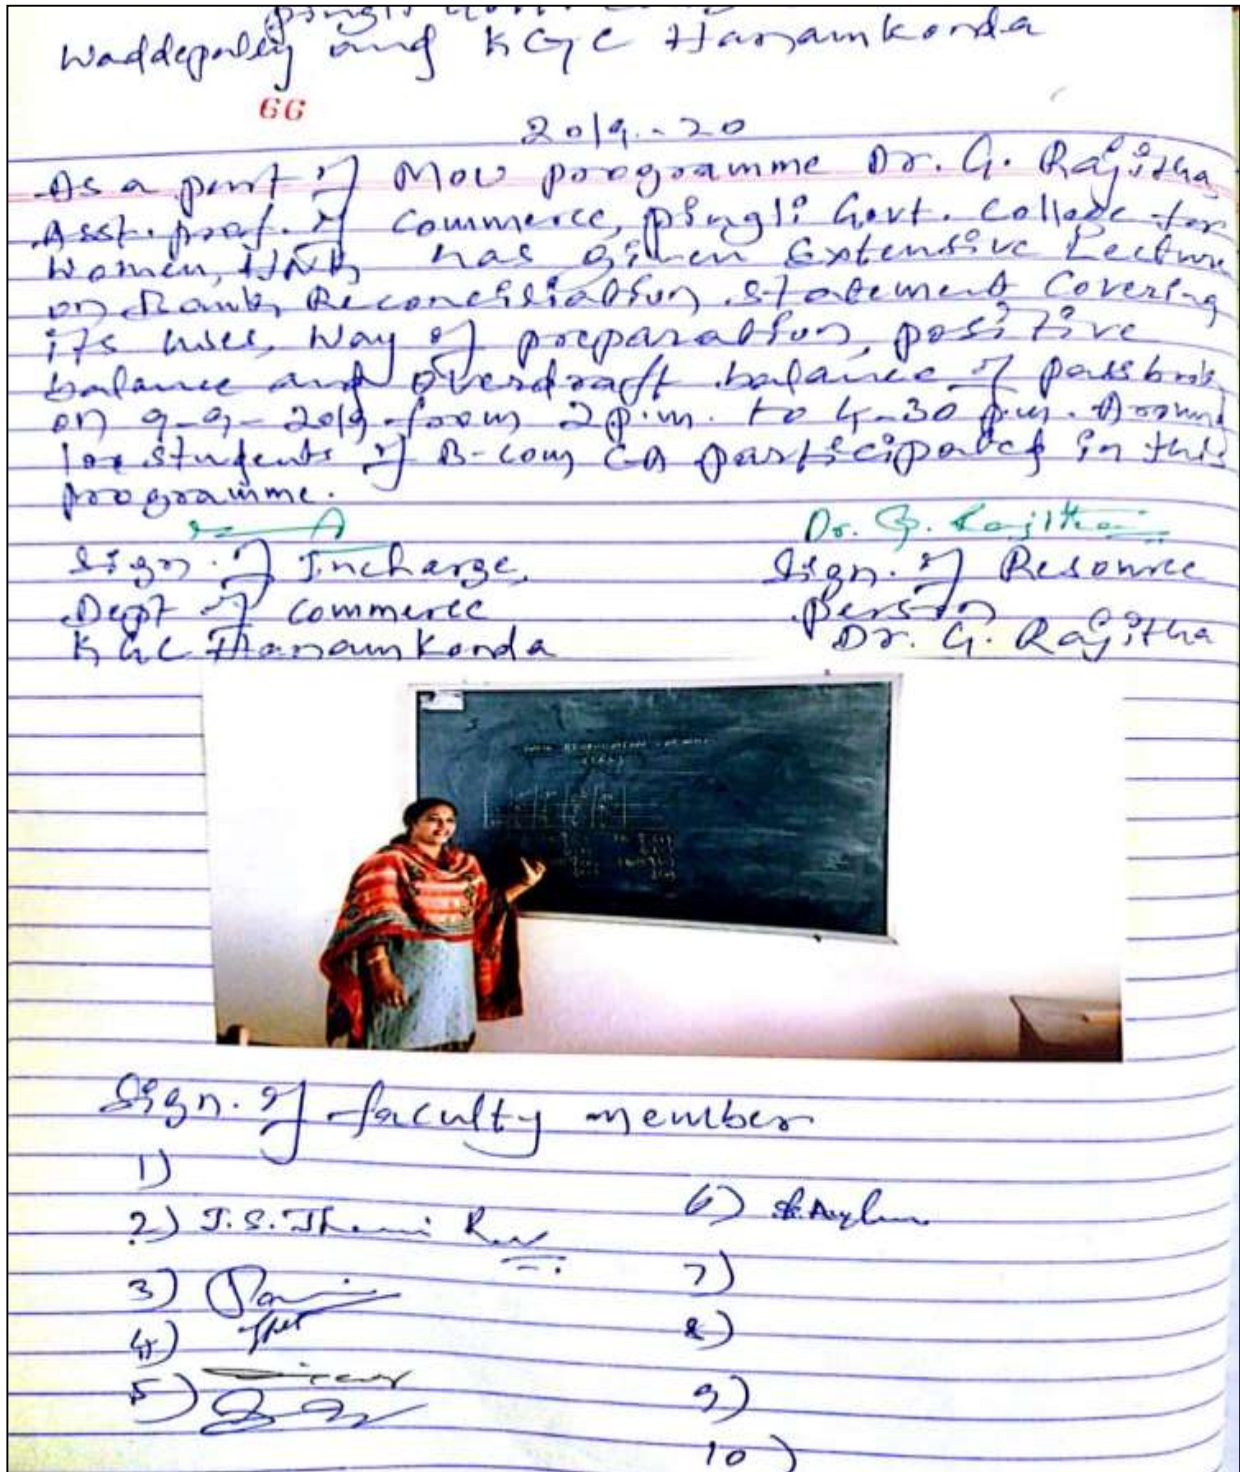 Pingli Govt.
Waddepally and KGC Hanamkonda
66
2019-20
As a part of MOU programme Dr. G. Rajitha
Asst. prof. of Commerce, pingli Govt. College for
Women, HNK, has given Extensive Lecture
on Bank Reconciliation Statement Covering
its uses, Way of preparation, positive
balance and overdraft balance of passbook
on 9-9-2019 from 2 p.m. to 4-30 p.m. Around
students of B-Com CA participated in this
programme.
Dr. G. Rajitha
Sign. of Incharge, Sign. of Resource
Dept of Commerce person
KGC Hanamkonda Dr. G. Rajitha
Sign. of faculty member
1)
2) T.S. 6)
3) 7)
4) 8)
5) 9)
10)